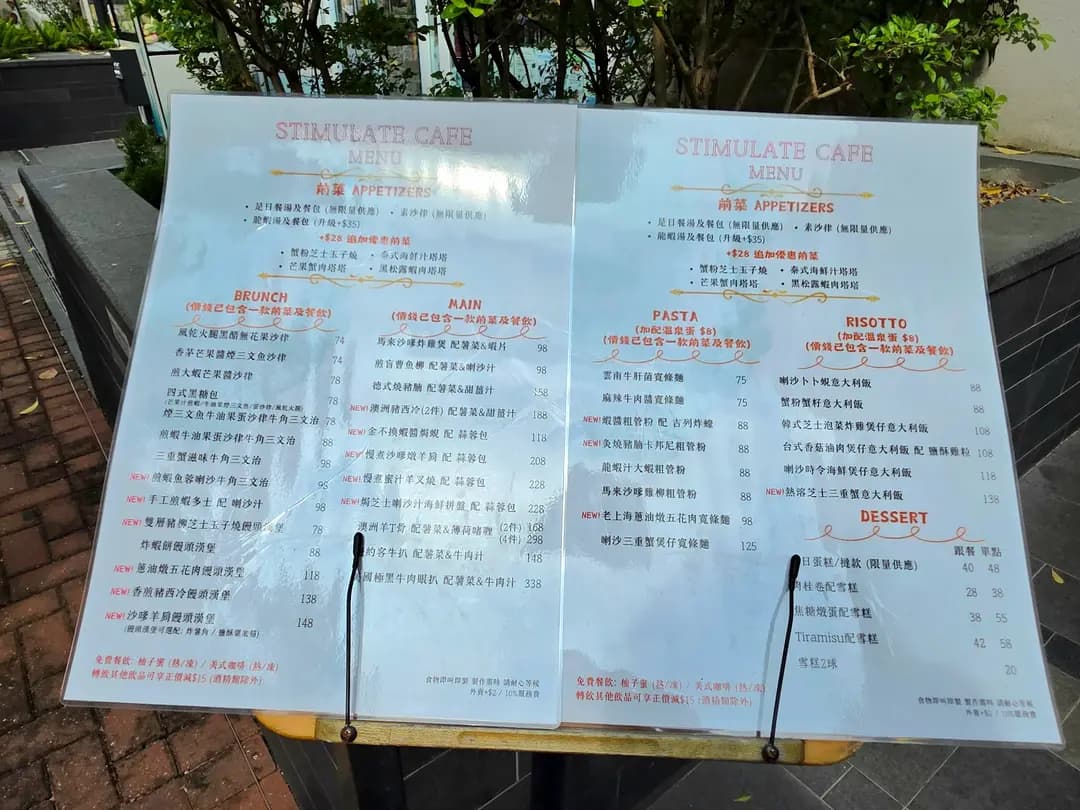 STIMULATE CAFE
MENU
前菜 APPETIZERS
• 是日餐湯及餐包 (無限量供應) • 素沙律 (無限量供應)
• 龍蝦湯及餐包 (升級+$35)
+$28 追加優惠前菜
• 蟹粉芝士玉子燒 • 泰式海鮮汁塔塔
• 芒果蟹肉塔塔 • 黑松露蝦肉塔塔
BRUNCH
(價錢已包含一款前菜及餐飲)
風乾火腿黑醋無花果沙律 74
香茅芒果醬煙三文魚沙律 74
煎大蝦芒果醬沙律 78
四式黑糖包 78
煙三文魚牛油果蛋沙律牛角三文治 78
煎蝦牛油果蛋沙律牛角三文治 88
三重蟹滋味牛角三文治 98
NEW! 煎蝦魚蓉喇沙牛角三文治 98
NEW! 手工煎蝦多士 配 喇沙汁
NEW! 雙層豬柳芝士玉子燒饅頭漢堡 78
炸蝦餅饅頭漢堡 88
NEW! 蔥油燉五花肉饅頭漢堡 118
NEW! 香煎豬西冷饅頭漢堡 138
NEW! 沙嗲羊肩饅頭漢堡 148
MAIN
(價錢已包含一款前菜及餐飲)
馬來沙嗲炸雞煲 配薯菜&蝦片 98
煎盲曹魚柳 配薯菜&喇沙汁 98
德式燒豬腩 配薯菜&甜薑汁 158
NEW! 澳洲豬西冷(2件) 配薯菜&甜薑汁 188
NEW! 金不換蝦醬焗蜆 配 蒜蓉包 118
NEW! 慢煮沙嗲燉羊肩 配 蒜蓉包 208
NEW! 慢煮蜜汁羊叉燒 配 蒜蓉包 228
NEW! 焗芝士喇沙汁海鮮拼盤 配 蒜蓉包 228
澳洲羊T骨 配薯菜&薄荷啫喱 (2件) 168
(4件) 298
的客牛扒 配薯菜&牛肉汁 148
國極黑牛肉眼扒 配薯菜&牛肉汁 338
免費餐飲: 柚子蜜 (熱/凍) / 美式咖啡 (熱/凍)
轉飲其他飲品可享正價減$15 (酒精類除外)
食物即叫即製 製作需時 請耐心等候
外賣+$2 / 10%服務費
STIMULATE CAFE
MENU
前菜 APPETIZERS
• 是日餐湯及餐包 (無限量供應) • 素沙律 (無限量供應)
• 龍蝦湯及餐包 (升級+$35)
+$28 追加優惠前菜
• 蟹粉芝士玉子燒 • 泰式海鮮汁塔塔
• 芒果蟹肉塔塔 • 黑松露蝦肉塔塔
PASTA
(加配溫泉蛋 $8)
(價錢已包含一款前菜及餐飲)
雲南牛肝菌寬條麵 75
麻辣牛肉醬寬條麵 75
NEW! 蝦醬粗管粉 配 吉列炸蠔 88
NEW! 炙燒豬腩卡邦尼粗管粉 88
龍蝦汁大蝦粗管粉 88
馬來沙嗲雞柳粗管粉 88
NEW! 老上海蔥油燉五花肉寬條麵 98
喇沙三重蟹煲仔寬條麵 125
RISOTTO
(加配溫泉蛋 $8)
(價錢已包含一款前菜及餐飲)
喇沙卜卜蜆意大利飯 88
蟹粉蟹籽意大利飯 88
韓式芝士泡菜炸雞煲仔意大利飯 108
台式香菇滷肉煲仔意大利飯 配 鹽酥雞粒 108
喇沙時令海鮮煲仔意大利飯 118
NEW! 熱溶芝士三重蟹意大利飯 138
DESSERT
跟餐 單點
日蛋糕/撻款 (限量供應) 40 48
肉桂卷配雪糕 28 38
焦糖燉蛋配雪糕 38 55
Tiramisu配雪糕 42 58
雪糕2球 20
免費餐飲: 柚子蜜 (熱/凍) / 美式咖啡 (熱/凍)
轉飲其他飲品可享正價減$15 (酒精類除外)
食物即叫即製 製作需時 請耐心等候
外賣+$2 / 10%服務費